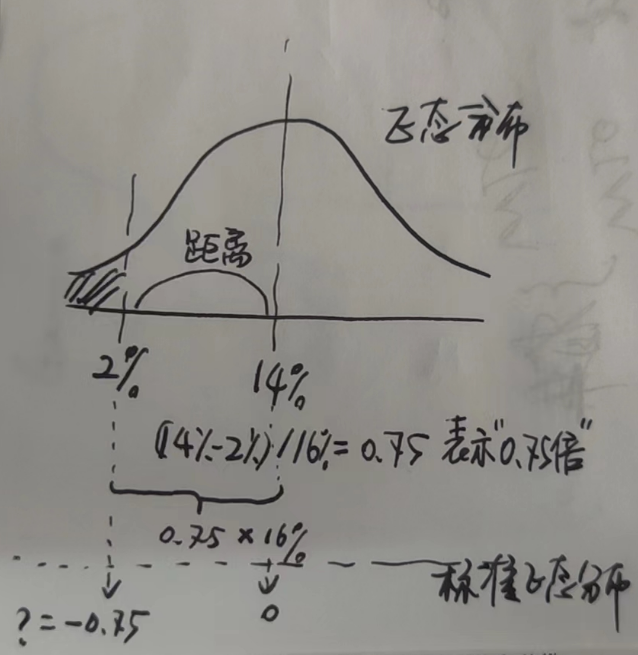 正态分布
距离
2% 14%
(14%-2%)/16%=0.75 表示"0.75倍"
0.75×16%
标准正态分布
?=-0.75 0